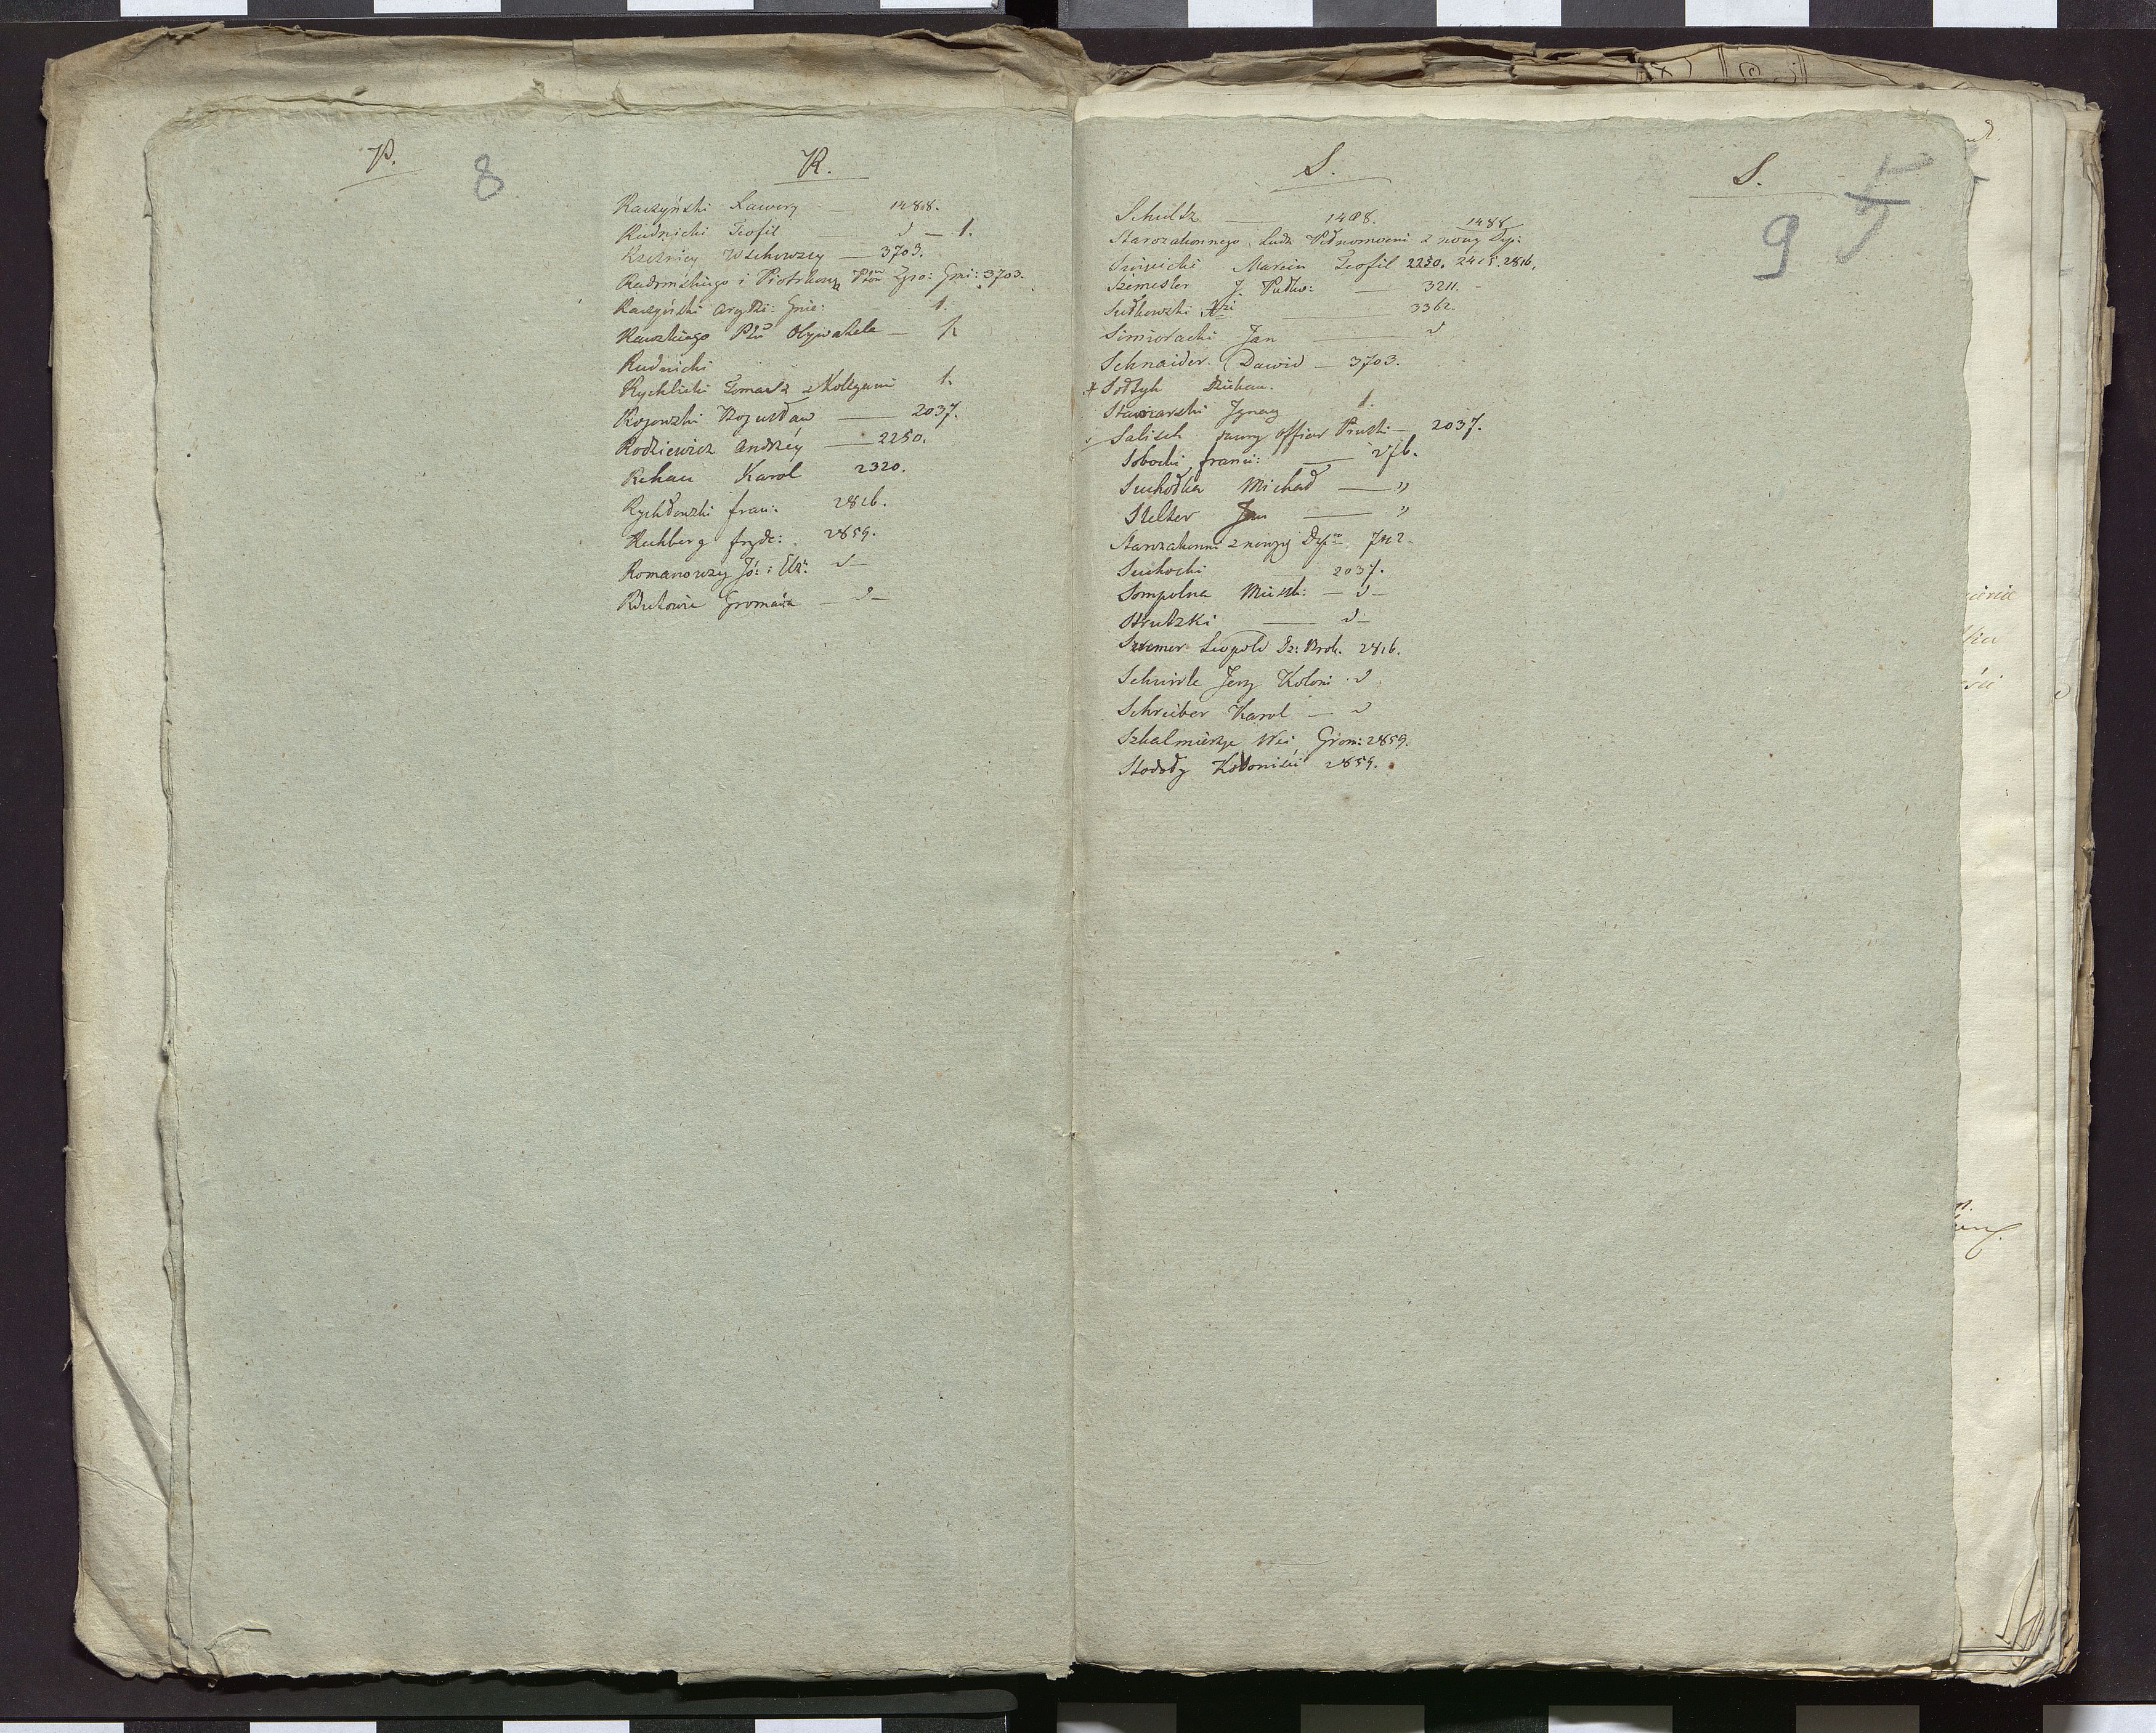 P.
8
R.
Raczyński Xawery — 1488.
Rudnicki Teofil — d — 1.
Rzeźnicy Wschowscy — 3703.
Radomskiego i Piotrkows Ptów Zgro: Gmi: 3703.
Raczyński Arcybi: Gnie: 1.
Rawskiego Ptu Obywatela — 1.
Rudnicki
Rychlicki Tomasz z Kolegami 1.
Rojowski Bogusław — 2037.
Rodziewicz Andrzéy — 2250.
Rehau Karol 2320.
Rychłowski fran: 2816.
Rechberg frydr: 2859.
Romanowscy Jó: i Elż: d—
Rdutowie Gromada — d—
S.
Schultz — 1488.
Starozakonnego Ludu Pełnomocni z nowy Dep: 1488
Siwicki Marcin Teofil 2250. 2415. 2816.
Szemesler J. Pułko: — 3211.
Sułkowski Xże — 3362.
Simioracki Jan — d
Schnaider Dawid — 3703.
+ Sołtyk Dziekan.
Stawiarski Jgnacy 1.
Salisch dawny officier Pruski — 2037.
Sobocki franci: — 276.
Suchołka Michał — "
Stelter Jan — "
Starozakonni z nowych Depte 782.
Suchocki 2037.
Sompolna Miesz: — d—
Strutzki — d—
Szremer Leopold Dz: Brok. 2816.
Schwirle Jerzy Koloni d
Schreiber Karol — d
Szkalmierzyce Wsi Grom: 2859.
Stodoły Koloniści 2859.
S.
9
5